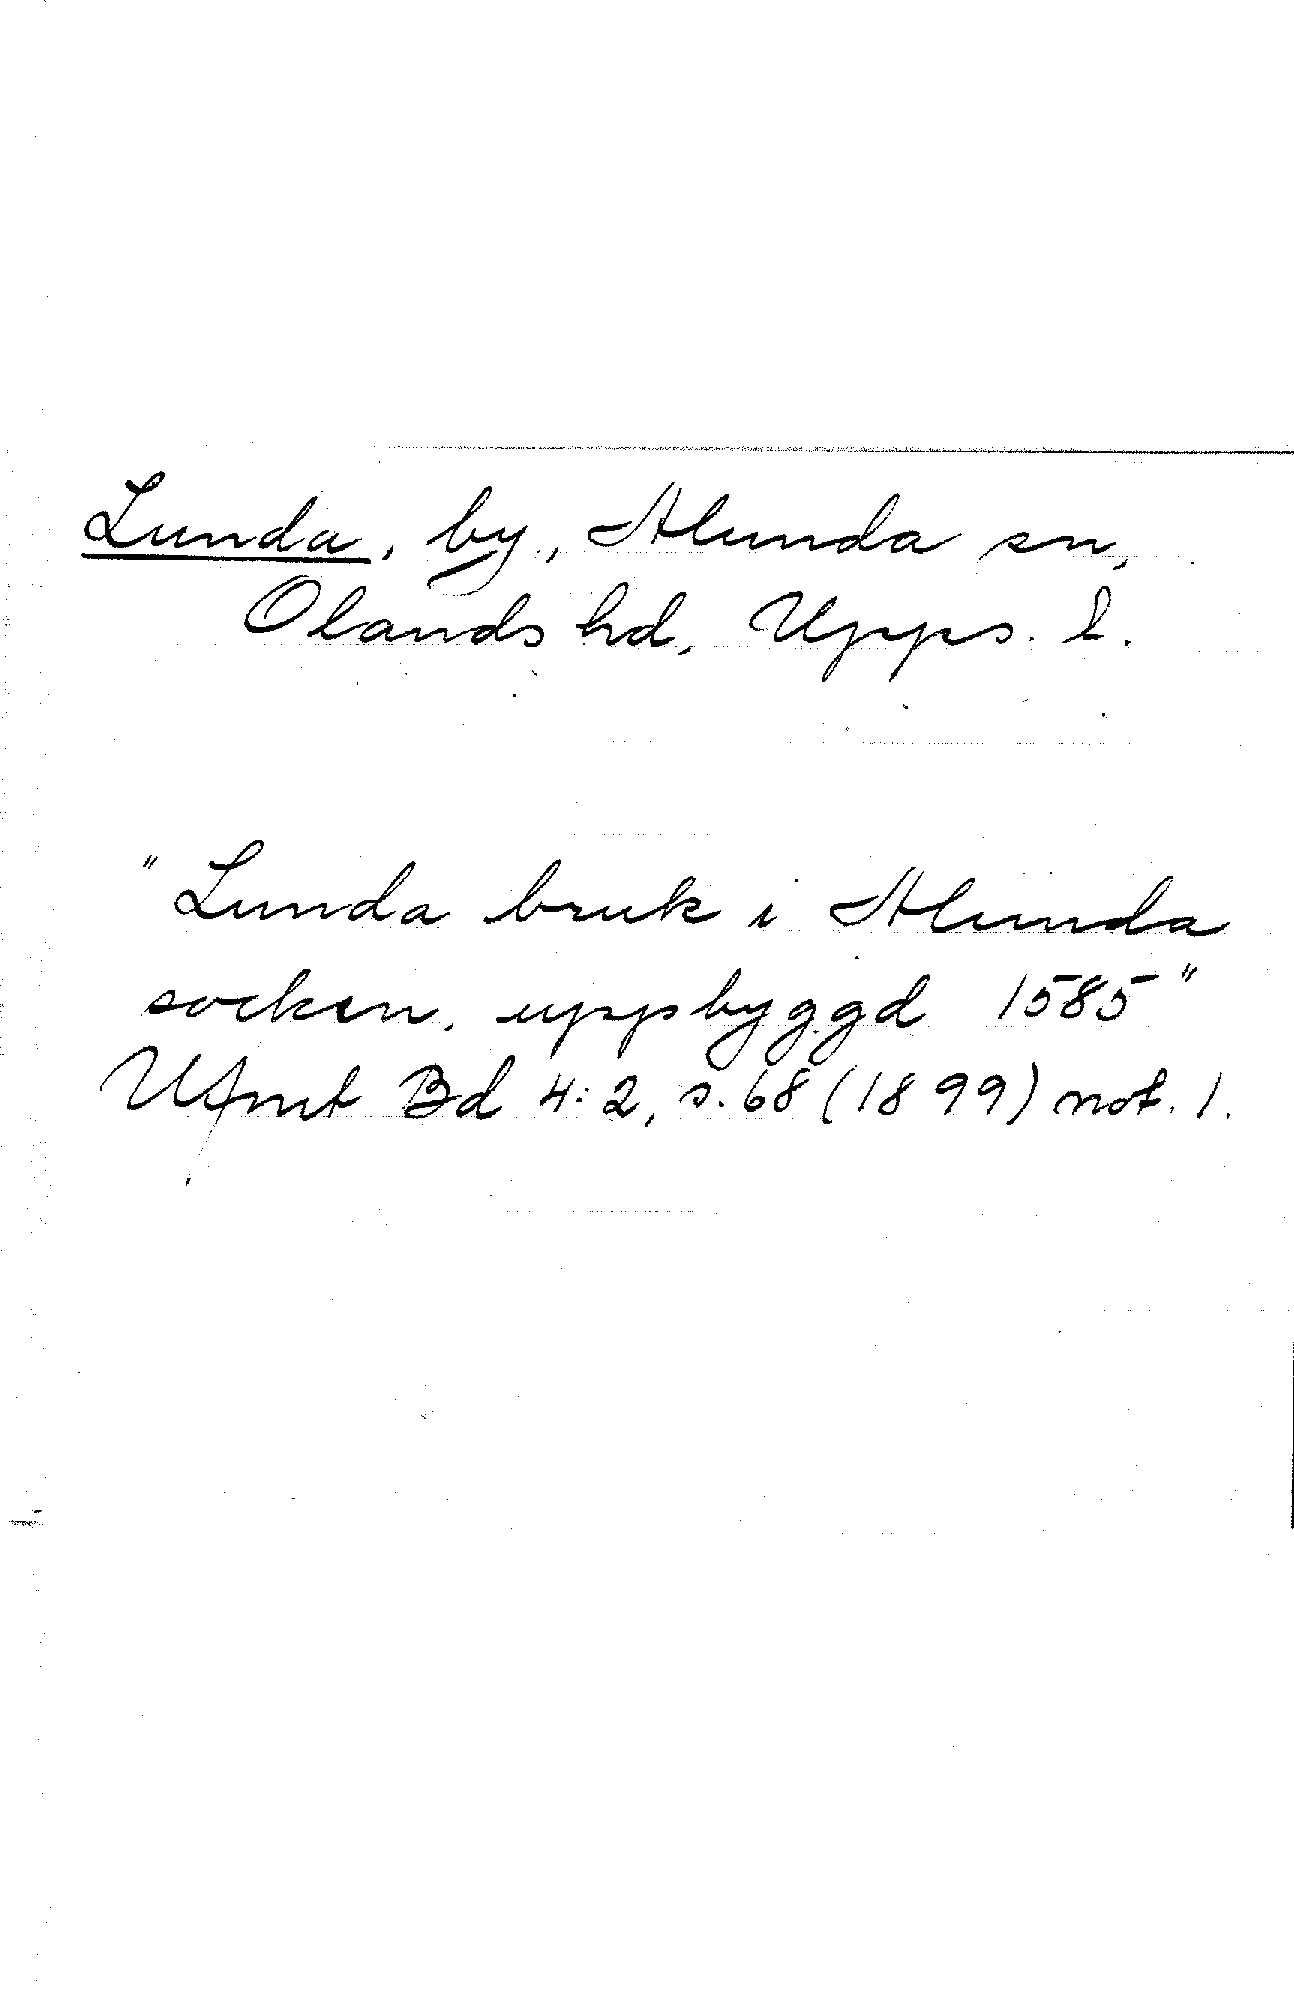 Lunda, by, Alunda sn,
Olands hd, Upps. l.
"Lunda bruk i Alunda
socken, uppbyggd 1585"
Ufmt Bd 4:2, s. 68 (1899) not. 1.